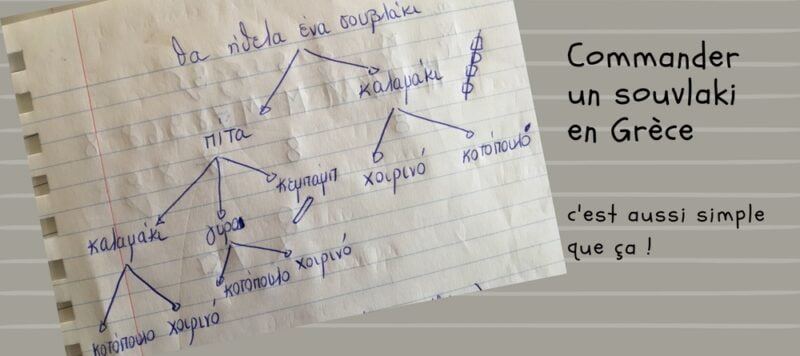 θα ήθελα ένα σουβλάκι
καλαμάκι
πίτα
χοιρινό κοτόπουλο
κεμπάμπ
καλαμάκι γύρο
κοτόπουλο χοιρινό
κοτόπουλο χοιρινό
Commander
un souvlaki
en Grèce
c'est aussi simple
que ça !